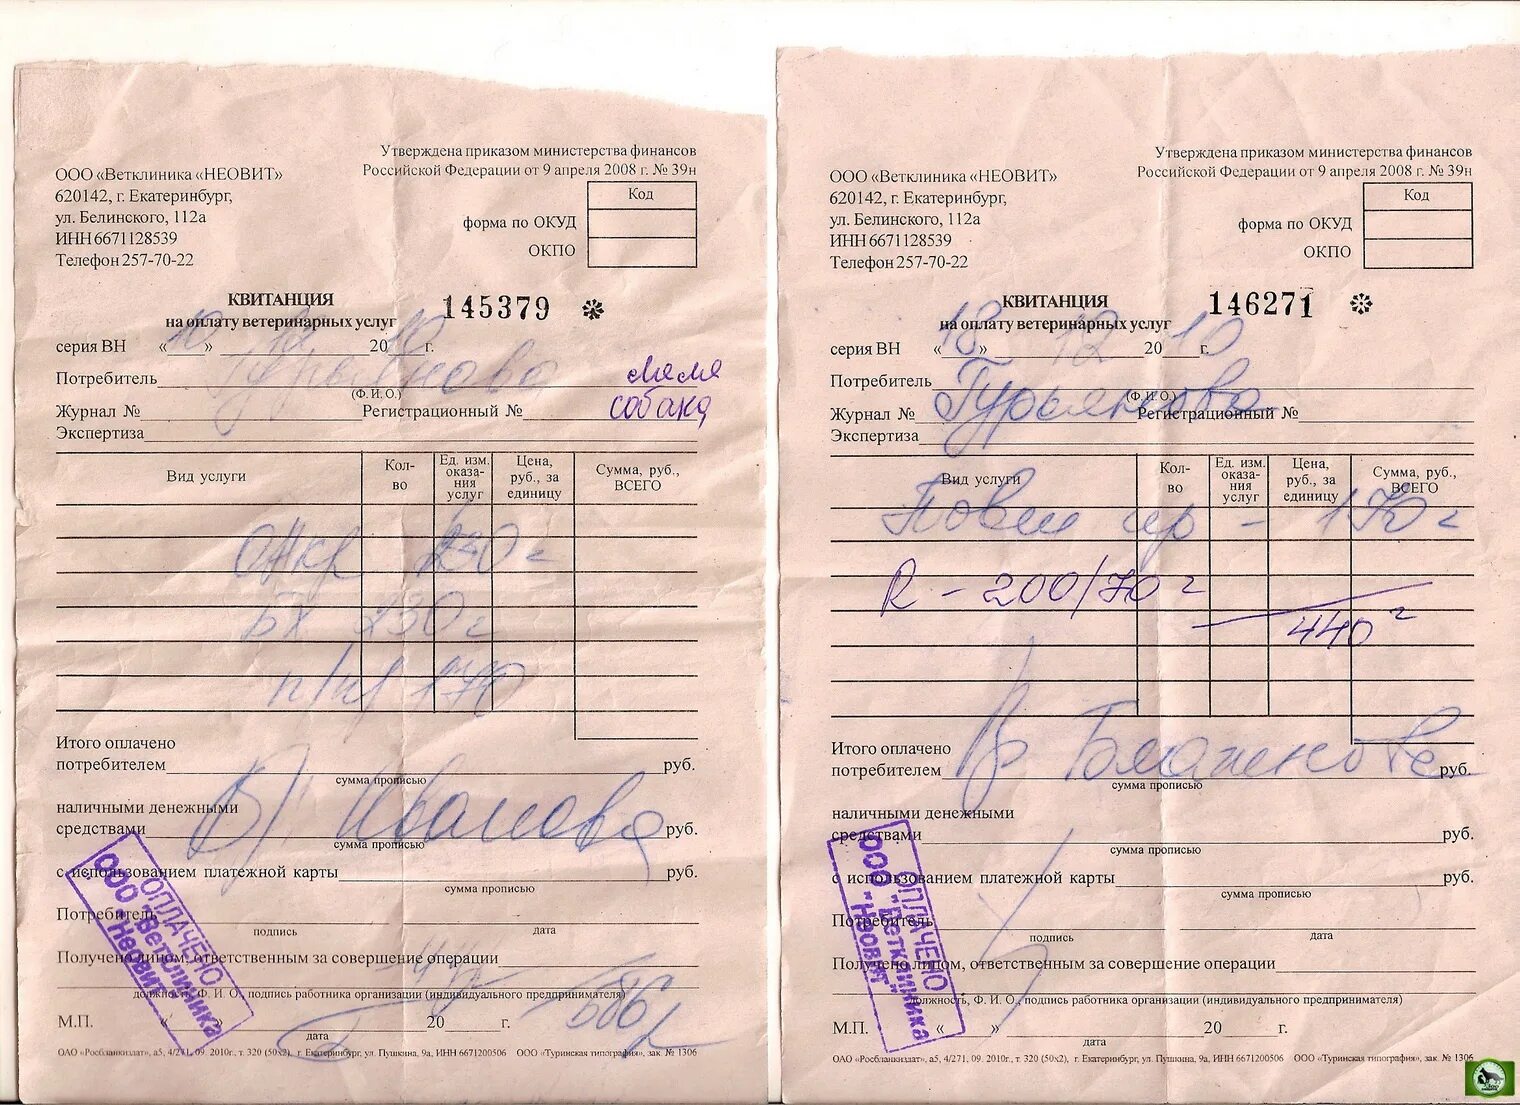 ООО «Ветклиника «НЕОВИТ»
620142, г. Екатеринбург,
ул. Белинского, 112а
ИНН 6671128539
Телефон 257-70-22
Утверждена приказом министерства финансов
Российской Федерации от 9 апреля 2008 г. № 39н
Код
форма по ОКУД
ОКПО
КВИТАНЦИЯ
на оплату ветеринарных услуг
145379
серия ВН «10» 12 2010 г.
Потребитель Гурьянова
(Ф. И. О.)
Журнал № Регистрационный №
собака
Экспертиза
Вид услуги
Кол-во
Ед. изм. оказа-ния услуг
Цена, руб., за единицу
Сумма, руб., ВСЕГО
230
БХ 230
170
Итого оплачено
потребителем руб.
сумма прописью
наличными денежными
средствами руб.
Иванова
сумма прописью
с использованием платежной карты руб.
сумма прописью
Потребитель
подпись дата
Получено лицом, ответственным за совершение операции
должность, Ф. И. О., подпись работника организации (индивидуального предпринимателя)
586
М.П. « » 20 г.
дата
ОПЛАЧЕНО
ООО "Ветклиника
"Неовит"
ОАО «Росбланкиздат», а5, 4/271, 09. 2010г., т. 320 (50х2), г. Екатеринбург, ул. Пушкина, 9а, ИНН 6671200506 ООО «Туринская типография», зак. № 1306
ООО «Ветклиника «НЕОВИТ»
620142, г. Екатеринбург,
ул. Белинского, 112а
ИНН 6671128539
Телефон 257-70-22
Утверждена приказом министерства финансов
Российской Федерации от 9 апреля 2008 г. № 39н
Код
форма по ОКУД
ОКПО
КВИТАНЦИЯ
на оплату ветеринарных услуг
146271
серия ВН «18» 12 2010 г.
Потребитель Гурьянова
(Ф. И. О.)
Журнал № Регистрационный №
Экспертиза
Вид услуги
Кол-во
Ед. изм. оказа-ния услуг
Цена, руб., за единицу
Сумма, руб., ВСЕГО
Повт пр - 170
R - 200/70
440
Итого оплачено
потребителем руб.
сумма прописью
наличными денежными
средствами руб.
сумма прописью
с использованием платежной карты руб.
сумма прописью
Потребитель
подпись дата
Получено лицом, ответственным за совершение операции
должность, Ф. И. О., подпись работника организации (индивидуального предпринимателя)
М.П. « » 20 г.
дата
ОПЛАЧЕНО
ООО "Ветклиника
"Неовит"
ОАО «Росбланкиздат», а5, 4/271, 09. 2010г., т. 320 (50х2), г. Екатеринбург, ул. Пушкина, 9а, ИНН 6671200506 ООО «Туринская типография», зак. № 1306